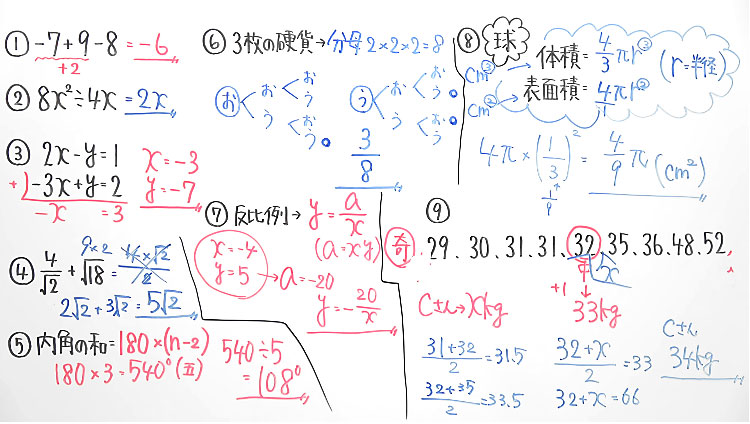 ① -7+9-8=-6
+2
② 8x²÷4x=2x
③ 2x-y=1
+) -3x+y=2
-x =3
x=-3
y=-7
④ 4/√2+√18=4×√2/2
9×2
2√2+3√2=5√2
⑤ 内角の和=180×(n-2)
180×3=540°(五)
540÷5
=108°
⑥ 3枚の硬貨→分母2×2×2=8
お お お う う お う
う お お う う お う
3/8
⑦ 反比例→y=a/x
(a=xy)
x=-4
y=5 →a=-20
y=-20/x
⑧ 球
cm³ 体積=4/3πr³ (r=半径)
cm² 表面積=4/1πr²
4π×(1/3)²=4/9π(cm²)
1/9
⑨
奇 29.30.31.31.32.35.36.48.52
x
+1
33kg
Cさん→xkg
31+32/2=31.5
32+35/2=33.5
32+x/2=33
32+x=66
Cさん
34kg